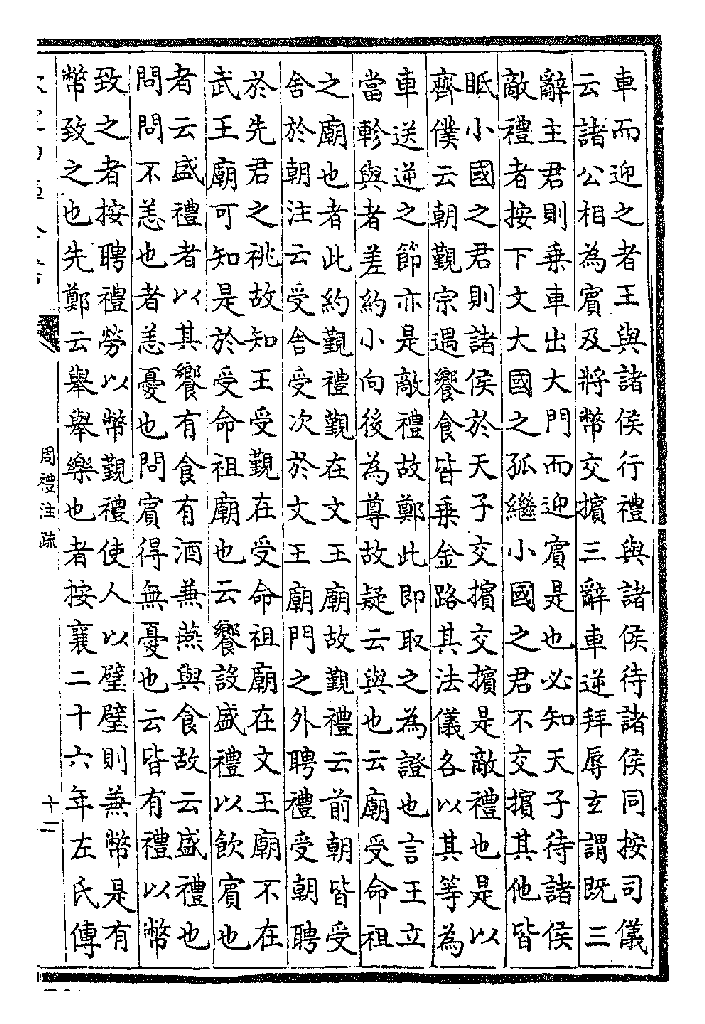 車而迎之者王與諸侯行禮與諸侯待諸侯同按司儀
云諸公相為賔及將幣交擯三辭車逆拜辱𤣥謂既三
辭主君則乗車出大門而迎賔是也必知天子待諸侯
敵禮者按下文大國之孤繼小國之君不交擯其他皆
眡小國之君則諸侯於天子交擯交擯是敵禮也是以
齊僕云朝覲宗遇饗食皆乗金路其法儀各以其等為
車送逆之節亦是敵禮故鄭此即取之為證也言王立
當軫與者差約小向後為尊故疑云與也云廟受命祖
之廟也者此約覲禮覲在文王廟故覲禮云前朝皆受
舍於朝注云受舍受次於文王廟門之外聘禮受朝聘
於先君之祧故知王受覲在受命祖廟在文王廟不在
武王廟可知是於受命祖廟也云饗設盛禮以飲賔也
者云盛禮者以其饗有食有酒兼燕與食故云盛禮也
問問不恙也者恙憂也問賔得無憂也云皆有禮以幣
致之者按聘禮勞以幣覲禮使人以璧璧則兼幣是有
幣致之也先鄭云舉舉樂也者按襄二十六年左氏傳
周禮注疏
十二